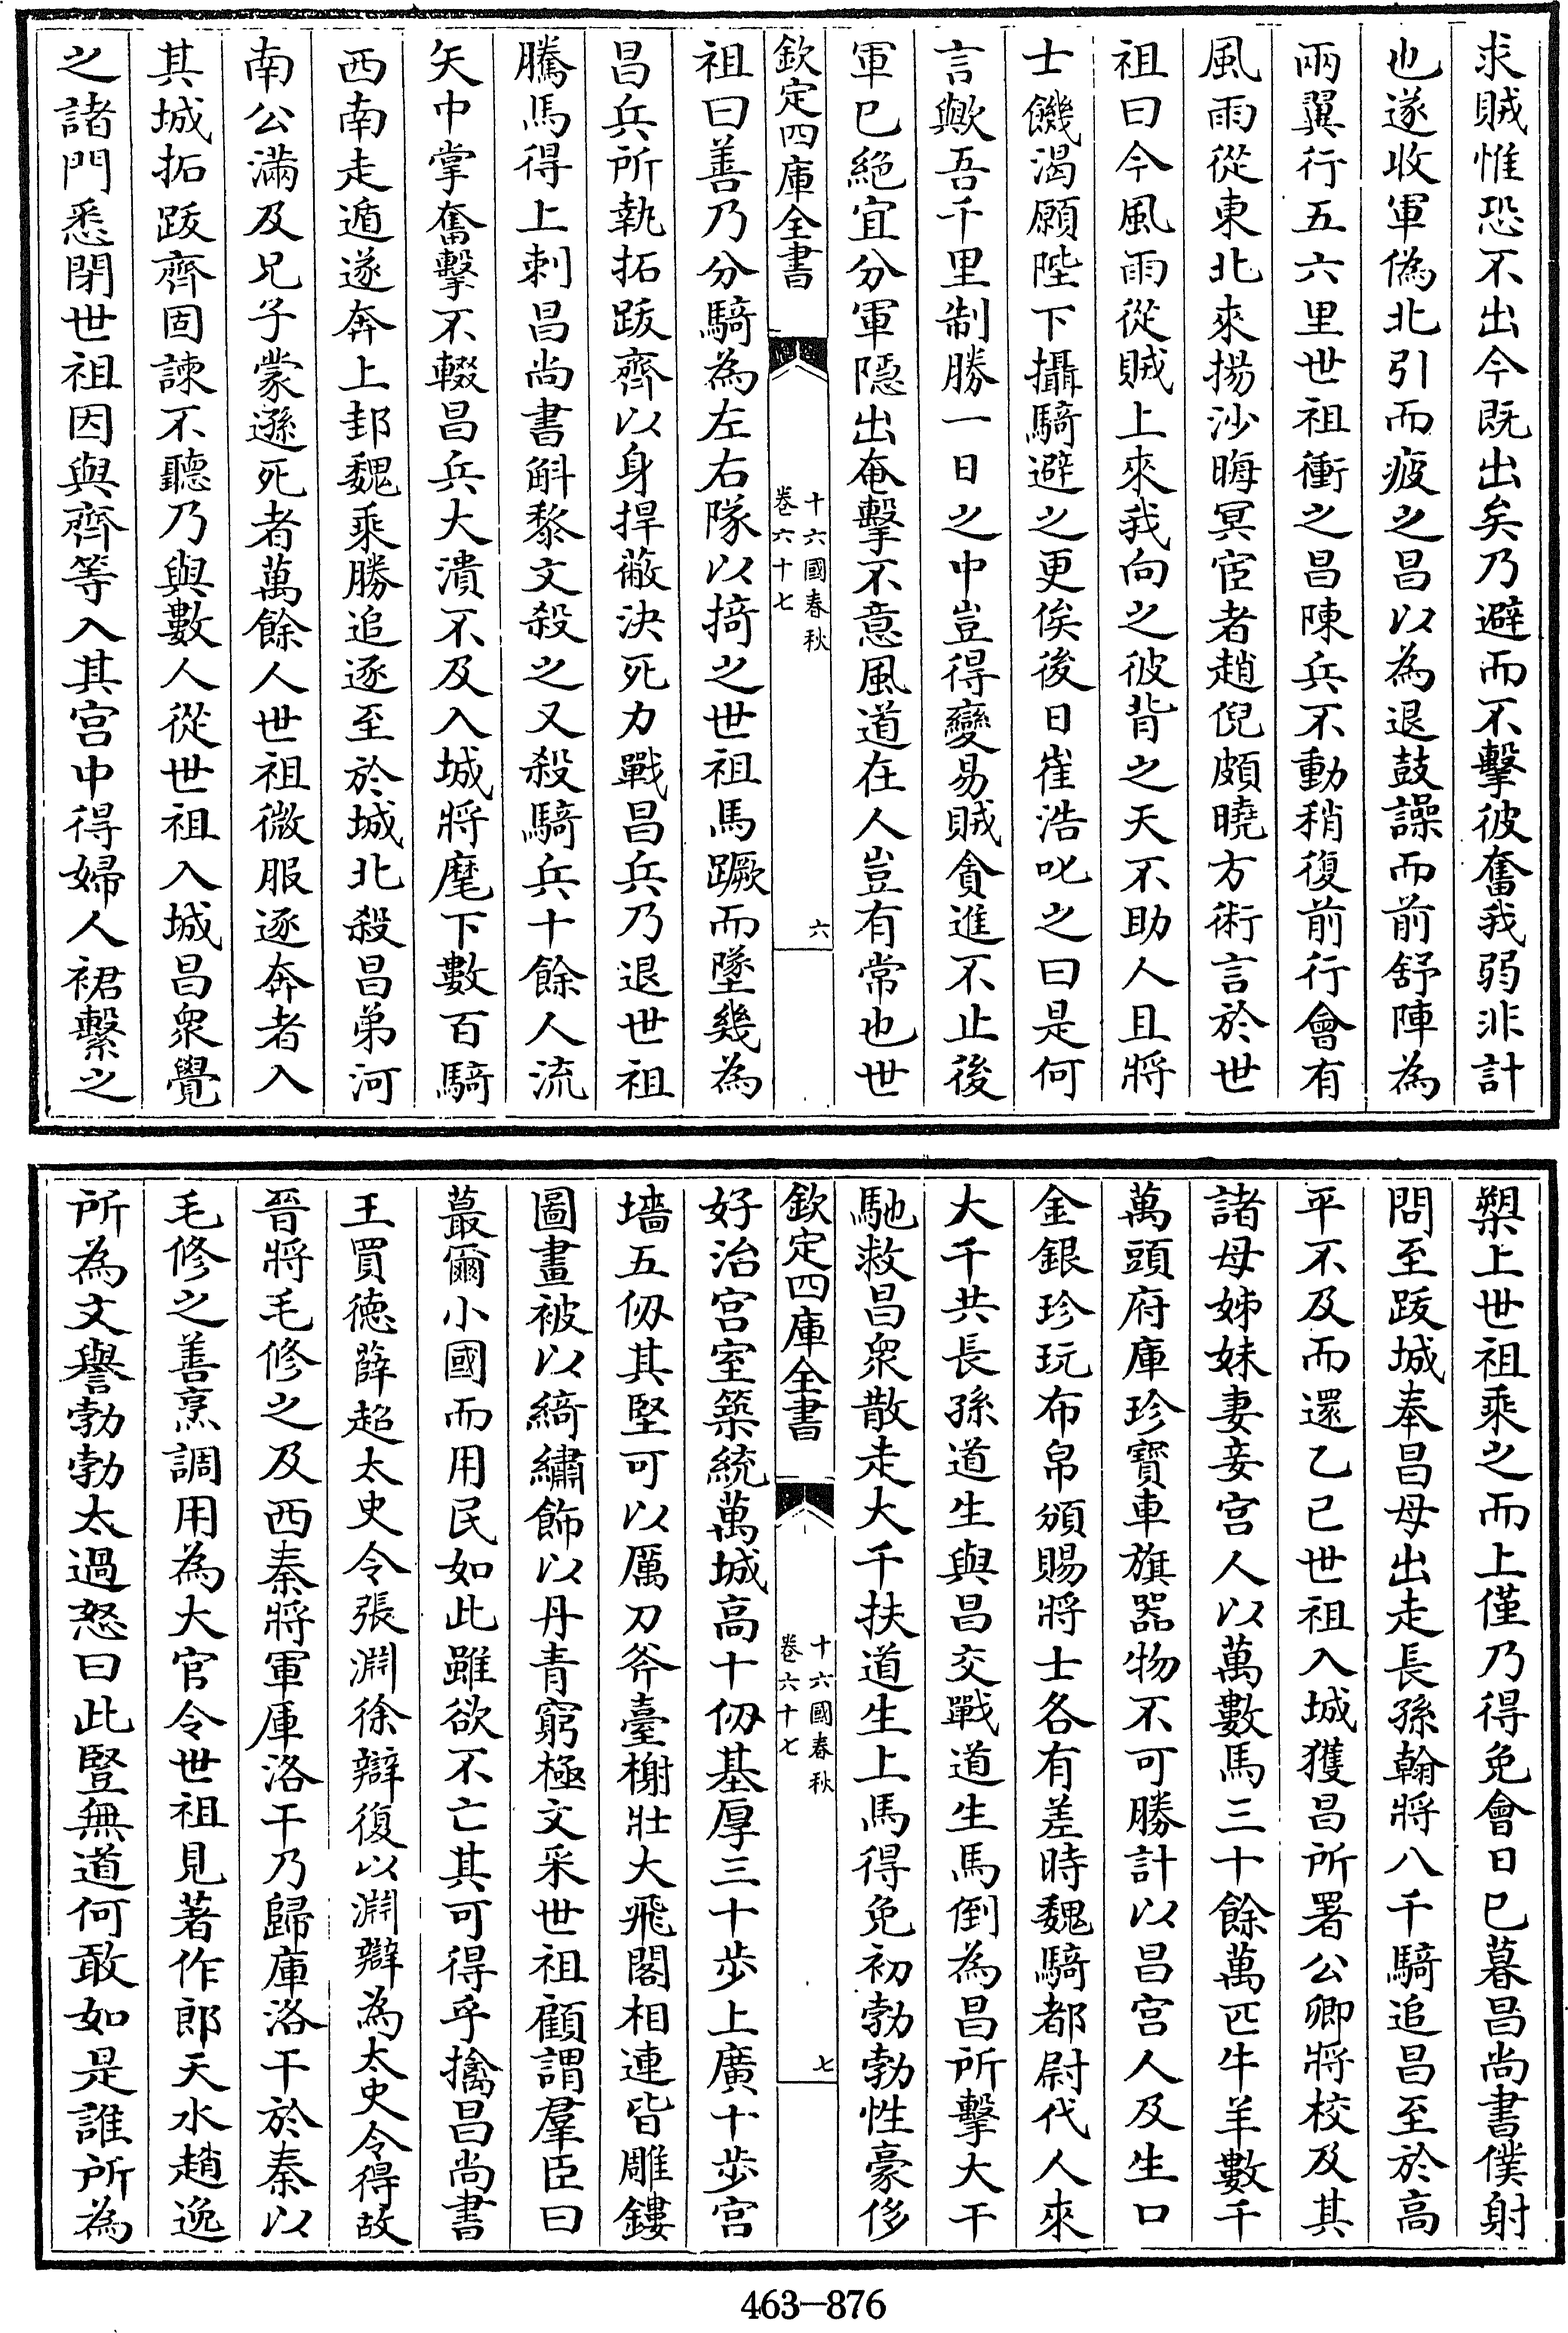 求賊惟恐不出今既出矣乃避而不擊彼奮我弱非計
也遂收軍偽北引而疲之昌以為退鼓譟而前舒陣為
兩翼行五六里世祖衝之昌陳兵不動稍復前行會有
風雨從東北來揚沙晦冥宦者趙倪頗曉方術言於世
祖曰今風雨從賊上來我向之彼背之天不助人且將
士饑渴願陛下攝騎避之更俟後日崔浩叱之曰是何
言歟吾千里制勝一日之中豈得變易賊貪進不止後
軍已絕宜分軍隱出奄擊不意風道在人豈有常也世
欽定四庫全書
十六國春秋
卷六十七
六
祖曰善乃分騎為左右隊以掎之世祖馬蹶而墜幾為
昌兵所執拓跋齊以身捍蔽決死力戰昌兵乃退世祖
騰馬得上刺昌尚書斛黎文殺之又殺騎兵十餘人流
矢中掌奮擊不輟昌兵大潰不及入城將麾下數百騎
西南走遁遂奔上邽魏乘勝追逐至於城北殺昌弟河
南公滿及兄子蒙遜死者萬餘人世祖微服逐奔者入
其城拓跋齊固諫不聽乃與數人從世祖入城昌眾覺
之諸門悉閉世祖因與齊等入其宮中得婦人裙繫之
槊上世祖乘之而上僅乃得免會日已暮昌尚書僕射
問至跋城奉昌母出走長孫翰將八千騎追昌至於高
平不及而還乙巳世祖入城獲昌所署公卿將校及其
諸母姊妹妻妾宮人以萬數馬三十餘萬匹牛羊數千
萬頭府庫珍寶車旗器物不可勝計以昌宮人及生口
金銀珍玩布帛頒賜將士各有差時魏騎都尉代人來
大千共長孫道生與昌交戰道生馬倒為昌所擊大千
馳救昌眾散走大千扶道生上馬得免初勃勃性豪侈
欽定四庫全書
十六國春秋
卷六十七
七
好治宮室築統萬城高十仞基厚三十步上廣十步宮
墻五仞其堅可以厲刀斧臺榭壯大飛閣相連皆雕鏤
圖畫被以綺繡飾以丹青窮極文采世祖顧謂羣臣曰
蕞爾小國而用民如此雖欲不亡其可得乎擒昌尚書
王買德薛超太史令張淵徐辯復以淵辯為太史令得故
晉將毛修之及西秦將軍庫洛干乃歸庫洛干於秦以
毛修之善烹調用為大官令世祖見著作郎天水趙逸
所為文譽勃勃太過怒曰此豎無道何敢如是誰所為
463-876